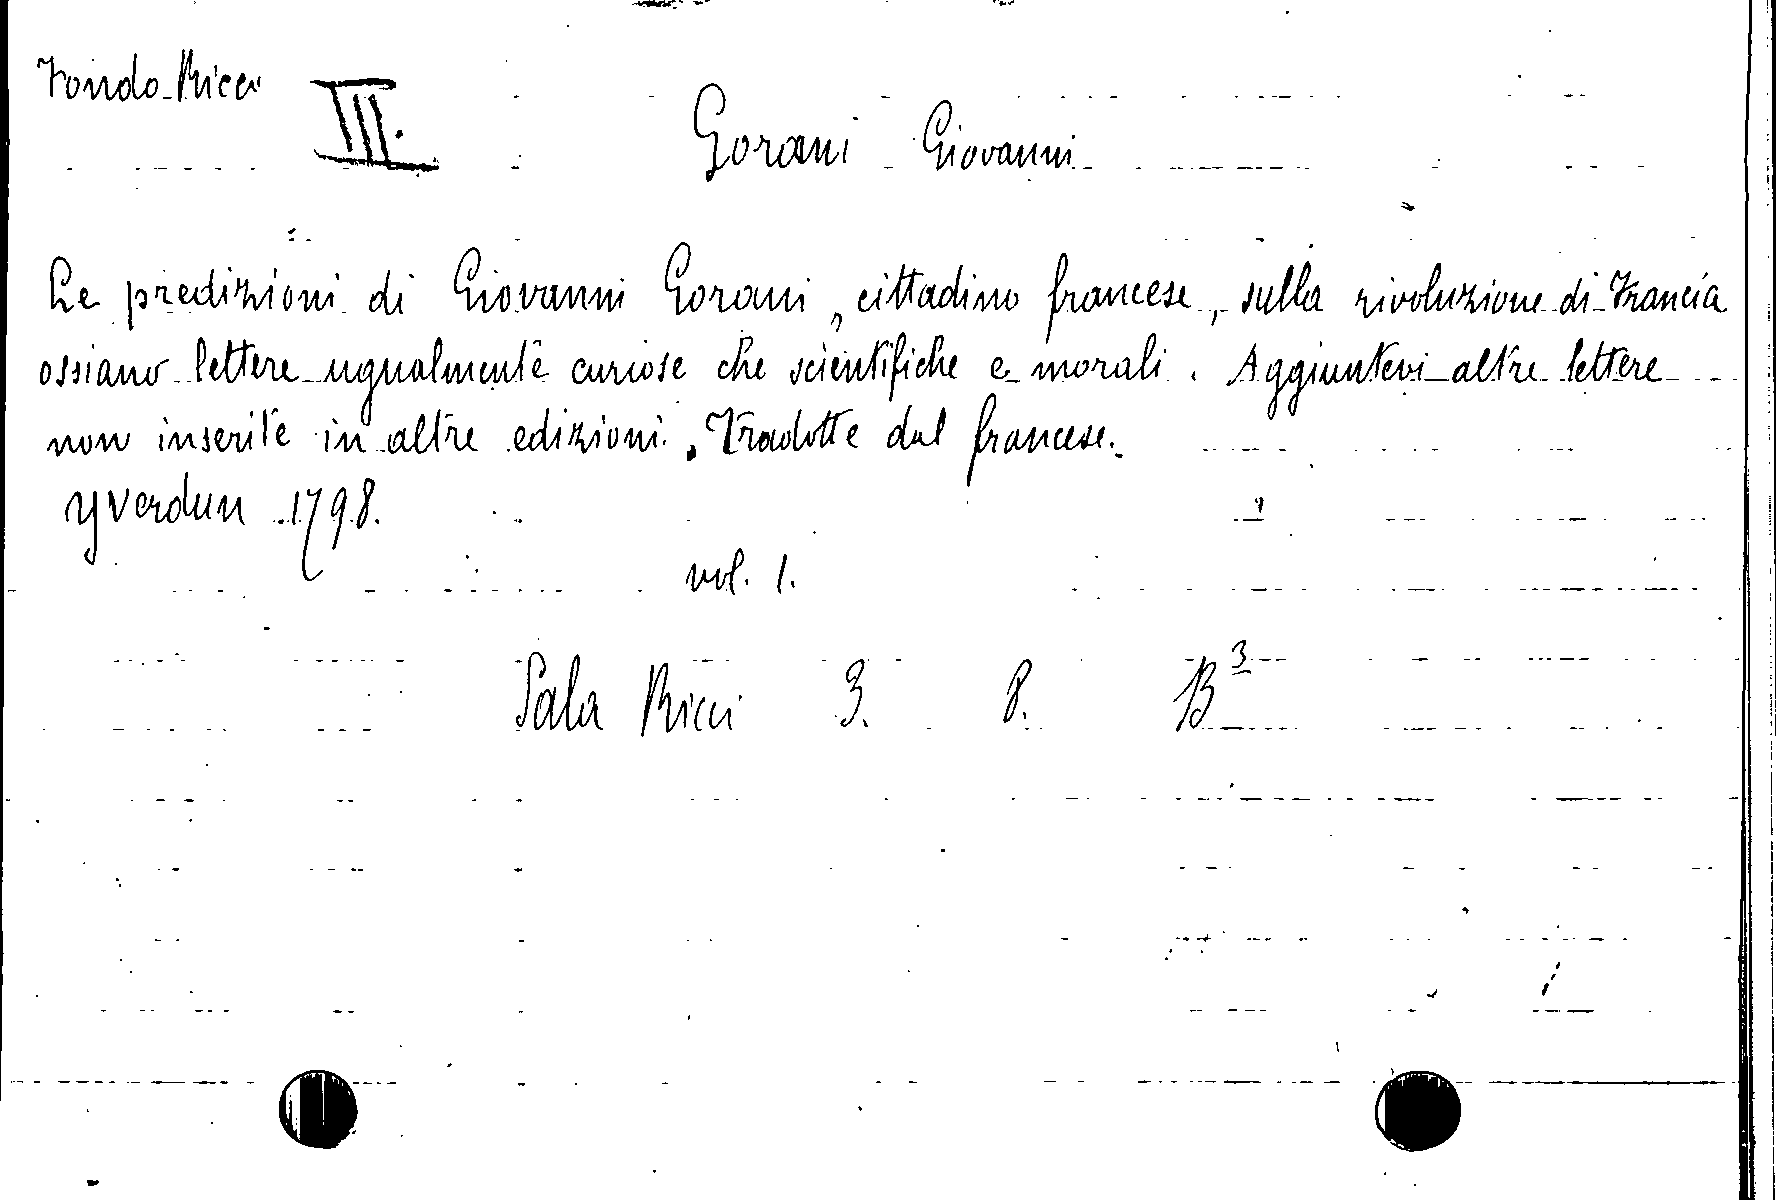 Fondo Ricci III. Gorani Giovanni
Le predizioni di Giovanni Gorani, cittadino francese, sulla rivoluzione di Francia
ossiano lettere ugualmente curiose che scientifiche e morali. Aggiuntevi altre lettere
non inserite in altre edizioni. Tradotte dal francese.
Yverdun 1798.
vol. 1.
Sala Ricci 3. 8. B³